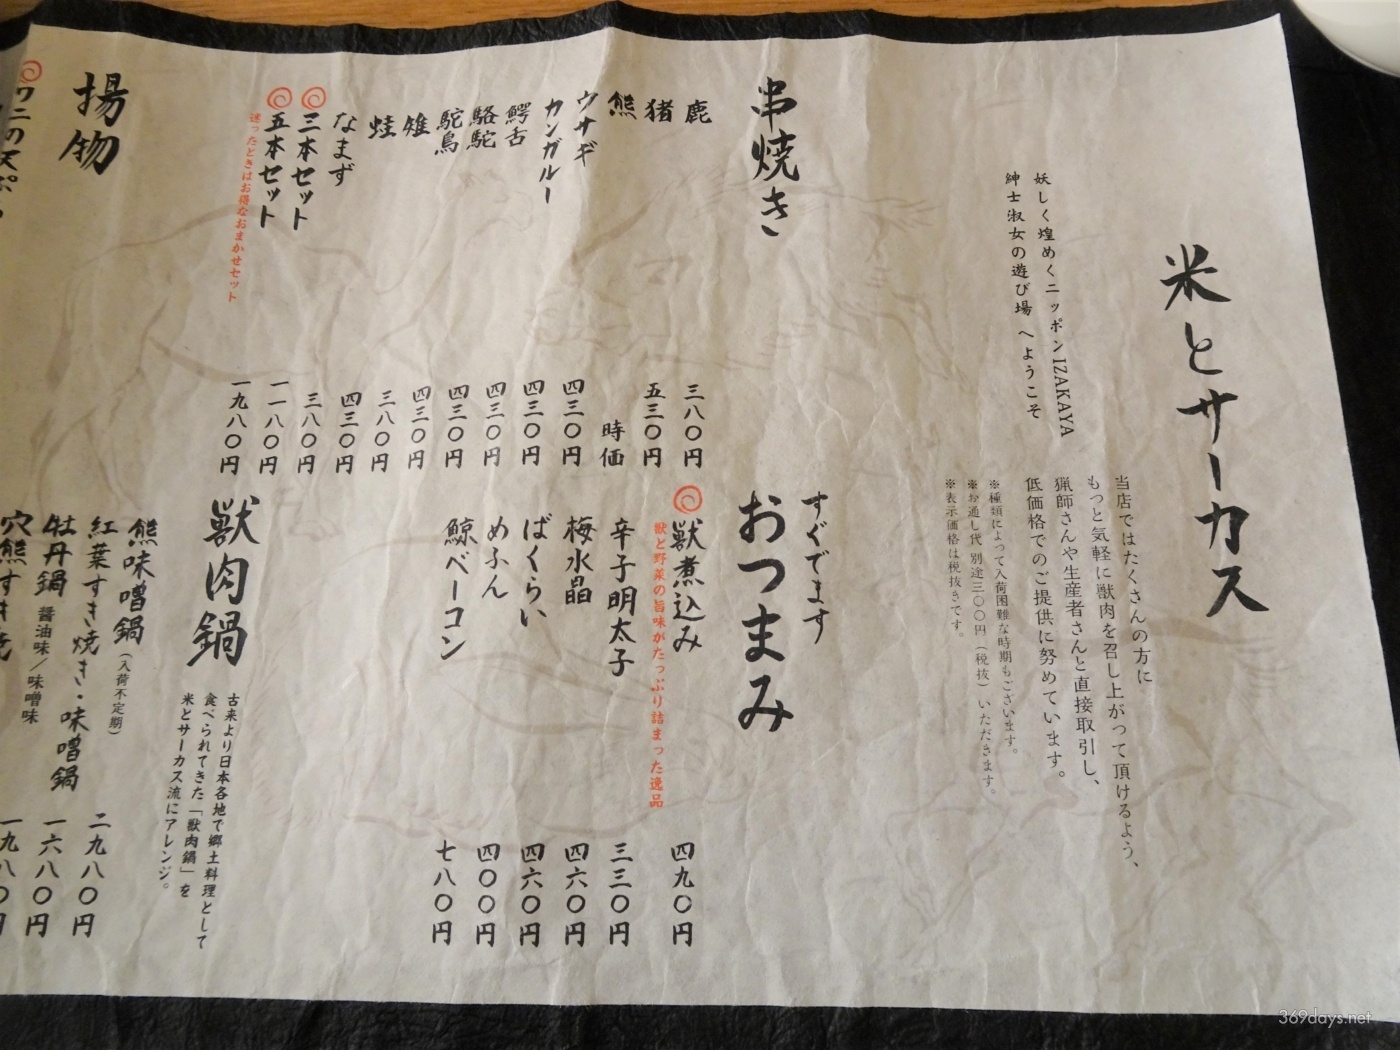 米とサーカス
妖しく煌めくニッポンIZAKAYA
紳士淑女の遊び場 へようこそ
当店ではたくさんの方に
もっと気軽に獣肉を召し上がって頂けるよう、
猟師さんや生産者さんと直接取引し、
低価格でのご提供に努めています。
※種類によって入荷困難な時期もございます。
※お通し代 別途三〇〇円(税抜)いただきます。
※表示価格は税抜きです。
串焼き
鹿 三八〇円
猪 五三〇円
熊 時価
ウサギ 四三〇円
カンガルー 四三〇円
鰐舌 四三〇円
駱駝 四三〇円
駝鳥 四三〇円
雉 三八〇円
蛙 四三〇円
なまず 三八〇円
三本セット 一一八〇円
五本セット 一九八〇円
迷ったときはお得なおまかせセット
揚物
ワニの天ぷら
すぐでます
おつまみ
獣煮込み 四九〇円
獣と野菜の旨味がたっぷり詰まった逸品
辛子明太子 三三〇円
梅水晶 四六〇円
ばくらい 四六〇円
めふん 四〇〇円
鯨ベーコン 七八〇円
獣肉鍋
古来より日本各地で郷土料理として
食べられてきた「獣肉鍋」を
米とサーカス流にアレンジ。
熊味噌鍋(入荷不定期) 二九八〇円
紅葉すき焼き・味噌鍋 一六八〇円
牡丹鍋 醤油味/味噌味 一九八〇円
穴熊すき焼
369days.net